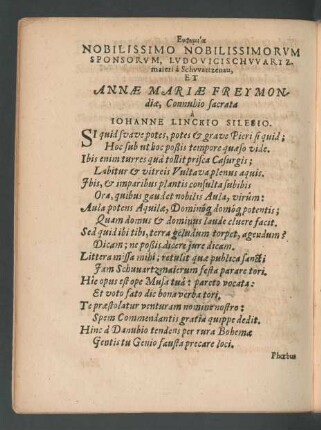 NOBILISSIMO NOBILISSIMORVM
SPONSORVM, LVDOVICI SCHVVARTZ-
maieri à Schvvartzenau,
ET
ANNÆ MARIÆ FREYMON-
diæ, Connubio sacrata
à
IOHANNE LINCKIO SILESIO.
SI quid svave potes, potes & grave Pieri si quid;
Hoc sub ut hoc possis tempore quæso vide.
Ibis enim turres quà tollit prisca Casurgis;
Labitur & vitreis Vultava plenus aquis.
Ibis, & imparibus plantis consulta subibis
Ora, quibus gaudet nobilis Aula, virûm:
Aula potens Aquilæ, Dominôq; domôq; potentis;
Quam domus & domium laude cluere facit.
Sed quid ibi tibi, terra geludum torpet, agendum?
Dicam; ne possis dicere jure dicam.
Littera missa mihi; retulit quæ publica sancti
Jam Schwartzmaierum festa parare tori.
Hic opus est ope Musa tuâ: pareto vocata:
Et voto fato dic bona verba tori.
Te præstolatur venturam nomine nostro:
Spem Commendantis gratia quippe dedit.
Hinc à Danubio tendens per rura Bohemæ
Gentis tu Genio fausta precare loci.
Phœbus